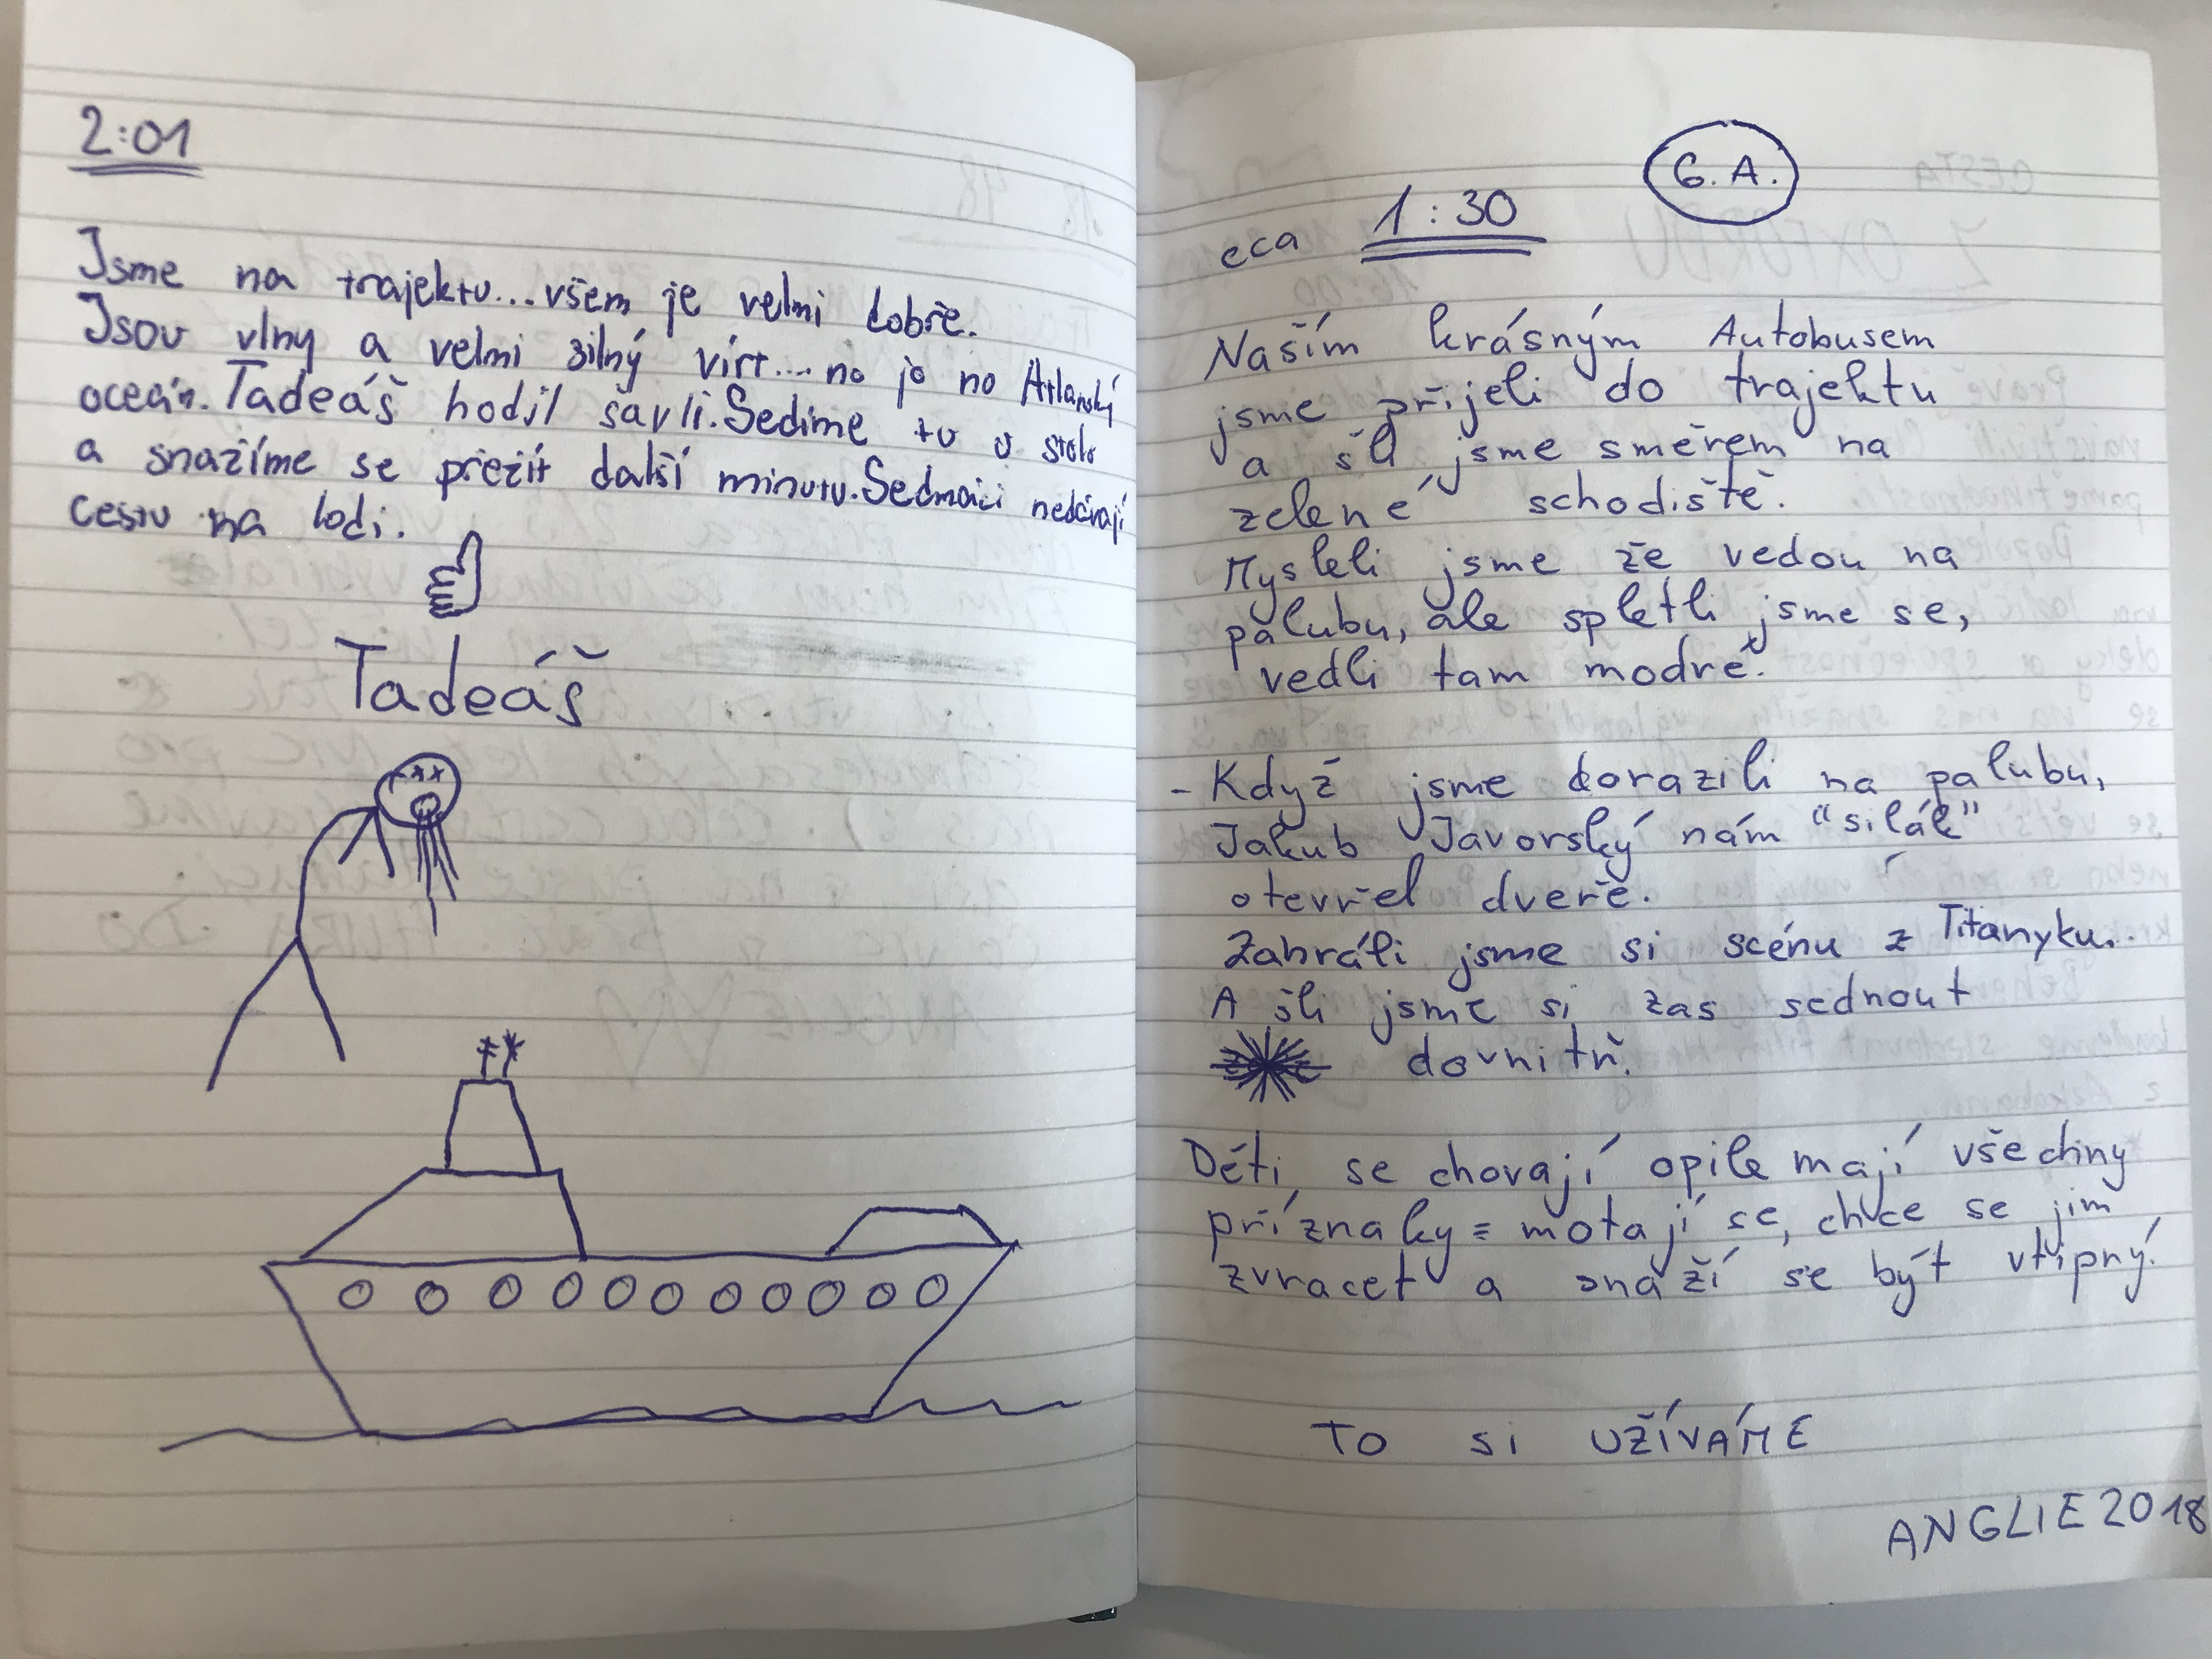 2:01
Jsme na trajektu...všem je velmi dobře.
Jsou vlny a velmi silný vítr....no jo no Atlanský
oceán. Tadeáš hodil šavli. Sedíme tu u stolu
a snažíme se přežít další minutu. Sedmáci nedávají
cestu na lodi.
Tadeáš
6. A.
eca 1:30
Naším krásným Autobusem
jsme přijeli do trajektu
a šli jsme směrem na
zelené schodiště.
Mysleli jsme že vedou na
palubu, ale spletli jsme se,
vedli tam modré.
- Když jsme dorazili na palubu,
Jakub Javorský nám "silák"
otevřel dveře.
Zahráli jsme si scénu z Titanyku..
A šli jsme si zas sednout
dovnitř.
Děti se chovají opile mají všechny
příznaky = motají se, chce se jim
zvracet a snaží se být vtipný.
TO SI UŽÍVÁME
ANGLIE 2018